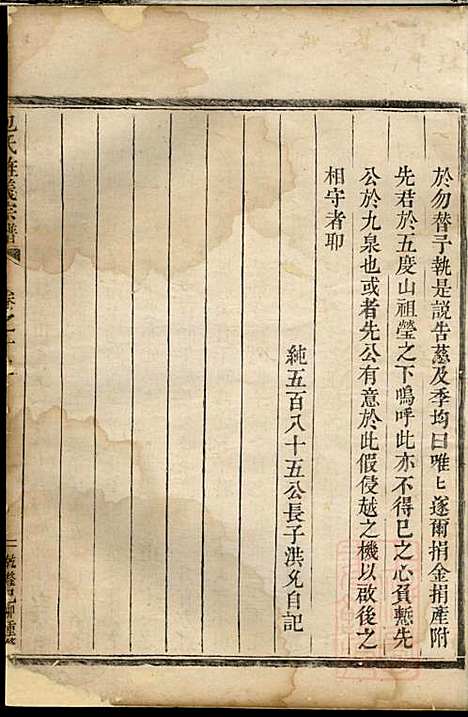 於勿替予執是説告慈及季均曰唯〻遂爾捐金捐產附
先君於五度山祖瑩之下嗚呼此亦不得已之心負慙先
公於九泉也或者先公有意於此假侵越之機以啟後之
相守者耶
純五百八十五公長子洪允自記
包氏旌義宗譜
卷之十